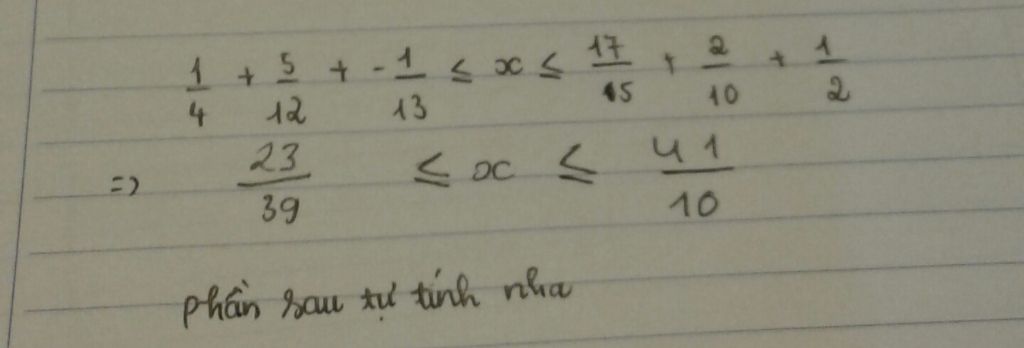 1/4 + 5/12 + -1/13 ≤ x ≤ 17/5 + 2/10 + 1/2
=> 23/39 ≤ x ≤ 41/10
phần sau tự tính nha